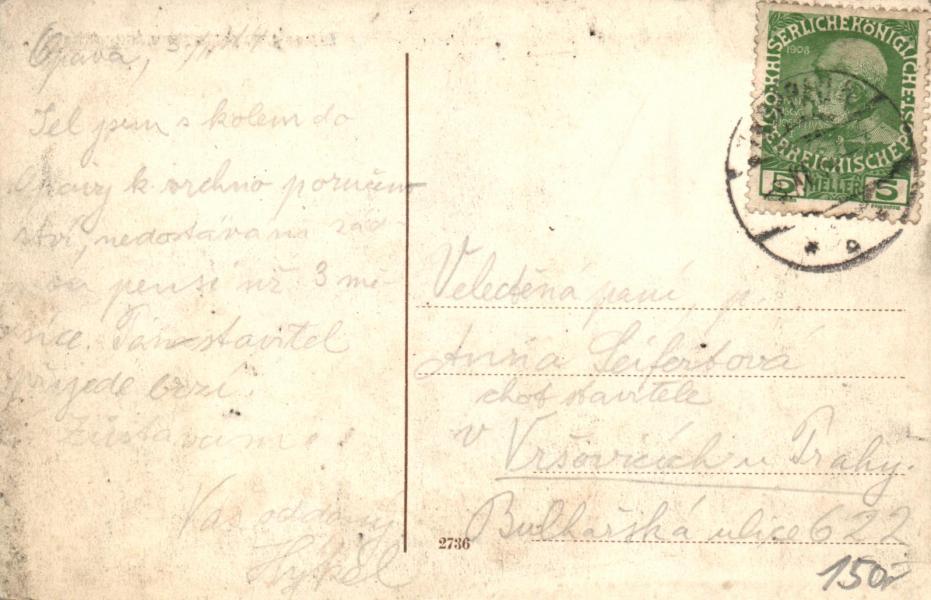 Opava,
Jel jsem s kolem do
Opavy k vrchno poručen
ství, nedostávam žád
pensi již 3 mě-
síce. Pan stavitel
přijede brzi.
Zůstávám
Vaš oddaný
Hykel
Veletěná paní, p.
Anna Seifertová
choť stavitele
v Vršovicích u Prahy.
Bulharská ulice 622
2736
150,-
KAISERLICHE KÖNIGLICHE
ÖSTERREICHISCHE POST
1908
5 HELLER 5